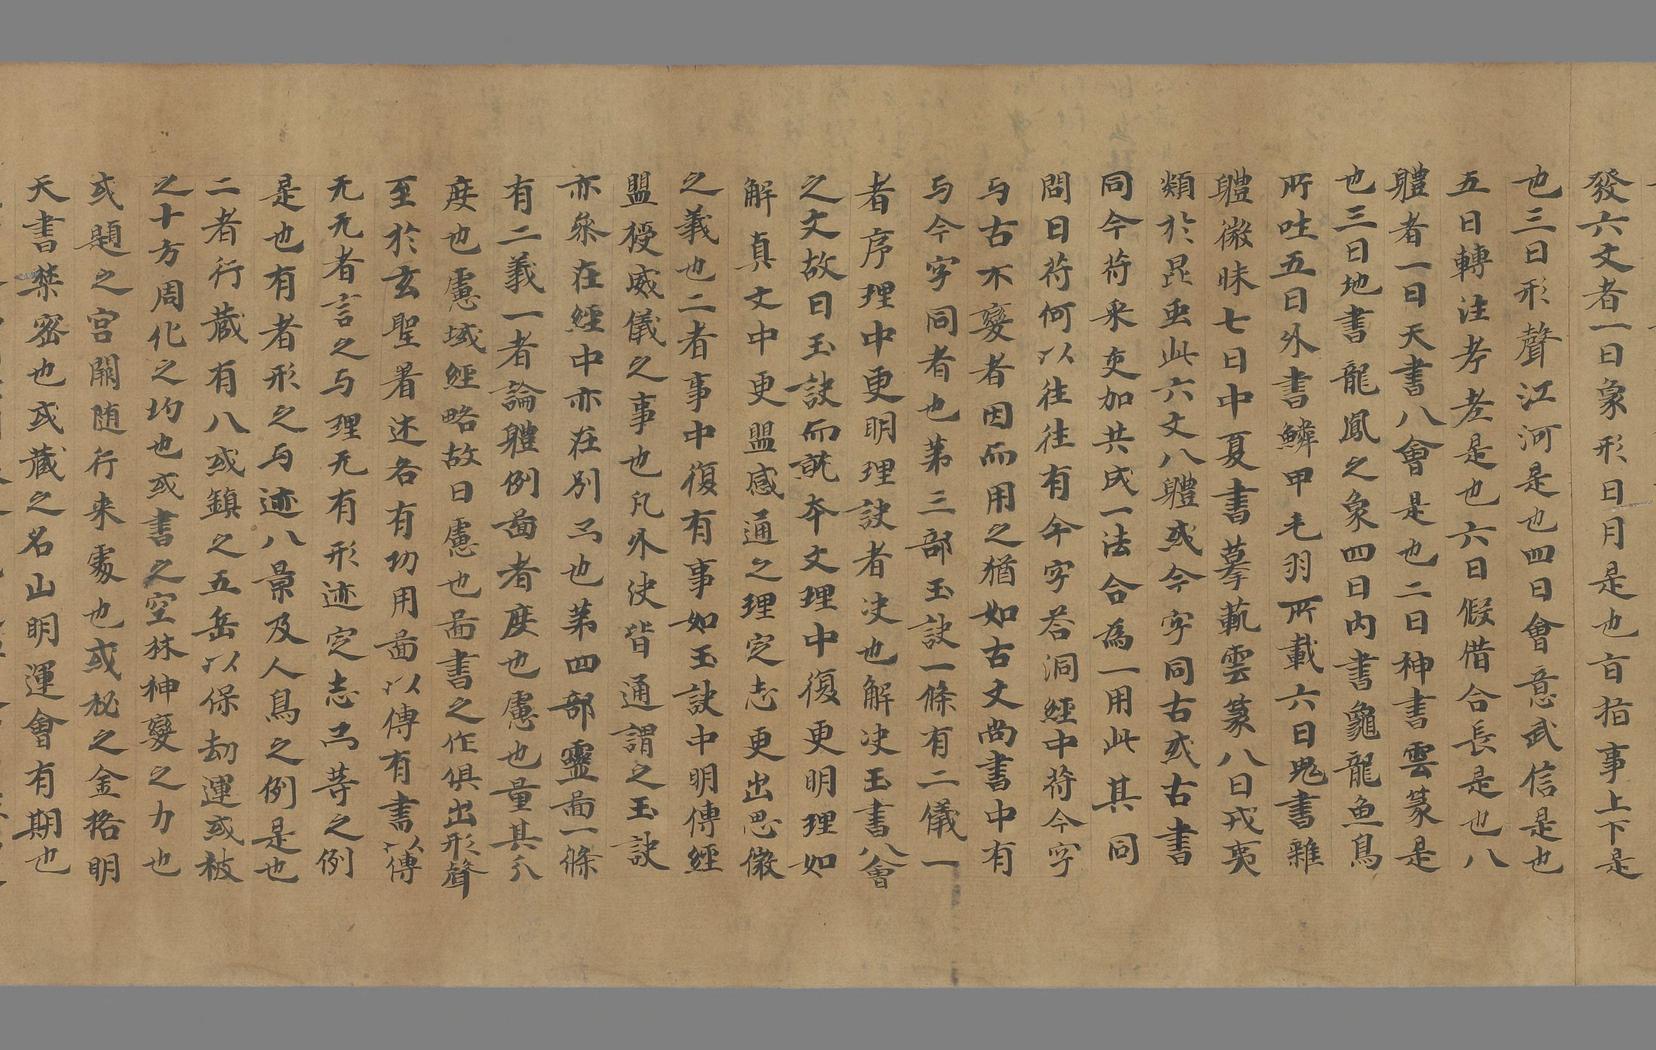 發六文者一曰象形日月是也百指事上下是
也三曰形聲江河是也四曰會意武信是也
五曰轉注考老是也六曰假借合長是也八
體者一曰天書八會是也二曰神書雲篆是
也三曰地書龍鳳之象四曰內書龜龍魚鳥
所吐五曰外書鱗甲毛羽所載六曰鬼書雜
體微昧七曰中夏書摹範雲篆八曰戎夷
類於昆虫此六文八體或今字同古或古書
同今苻采交加共成一法合為一用此其同
問曰苻何以往往有今字荅洞經中苻今字
与古不變者因而用之猶如古文尚書中有
与今字同者也第三部玉訣一條有二儀一
者序理中更明理訣者决也解决玉書八會
之文故曰玉訣而就夲文理中復更明理如
解真文中更盟感通之理定志更出思微
之義也二者事中復有事如玉訣中明傳經
盟授威儀之事也凡外决皆通謂之玉訣
亦条在經中亦在別㠯也第四部靈啚一條
有二義一者論體例啚者度也慮也量其分
度也慮域經略故曰慮也啚書之作俱出形聲
至於玄聖著述各有功用啚以傳有書以傳
无无者言之与理无有形迹定志㠯等之例
是也有者形之与迹八景及人鳥之例是也
二者行藏有八或鎮之五岳以保劫運或秘
之十方周化之均也或書之空林神變之力也
或題之宮闕随行来處也或秘之金格明
天書禁密也或藏之名山明運會有期也